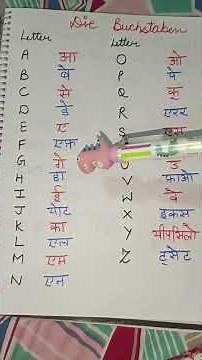 Die Buchstaben
Letter Letter
A आ O ओ
B बे P पे
C से Q कू
D डे R एरर
E ए S एस
F एफ़
G गे U उ
H हा V फाओ
I ई W वे
J योट X इकस
K का Y यीपसिलो
L एल Z ट्सेट
M एम
N एन